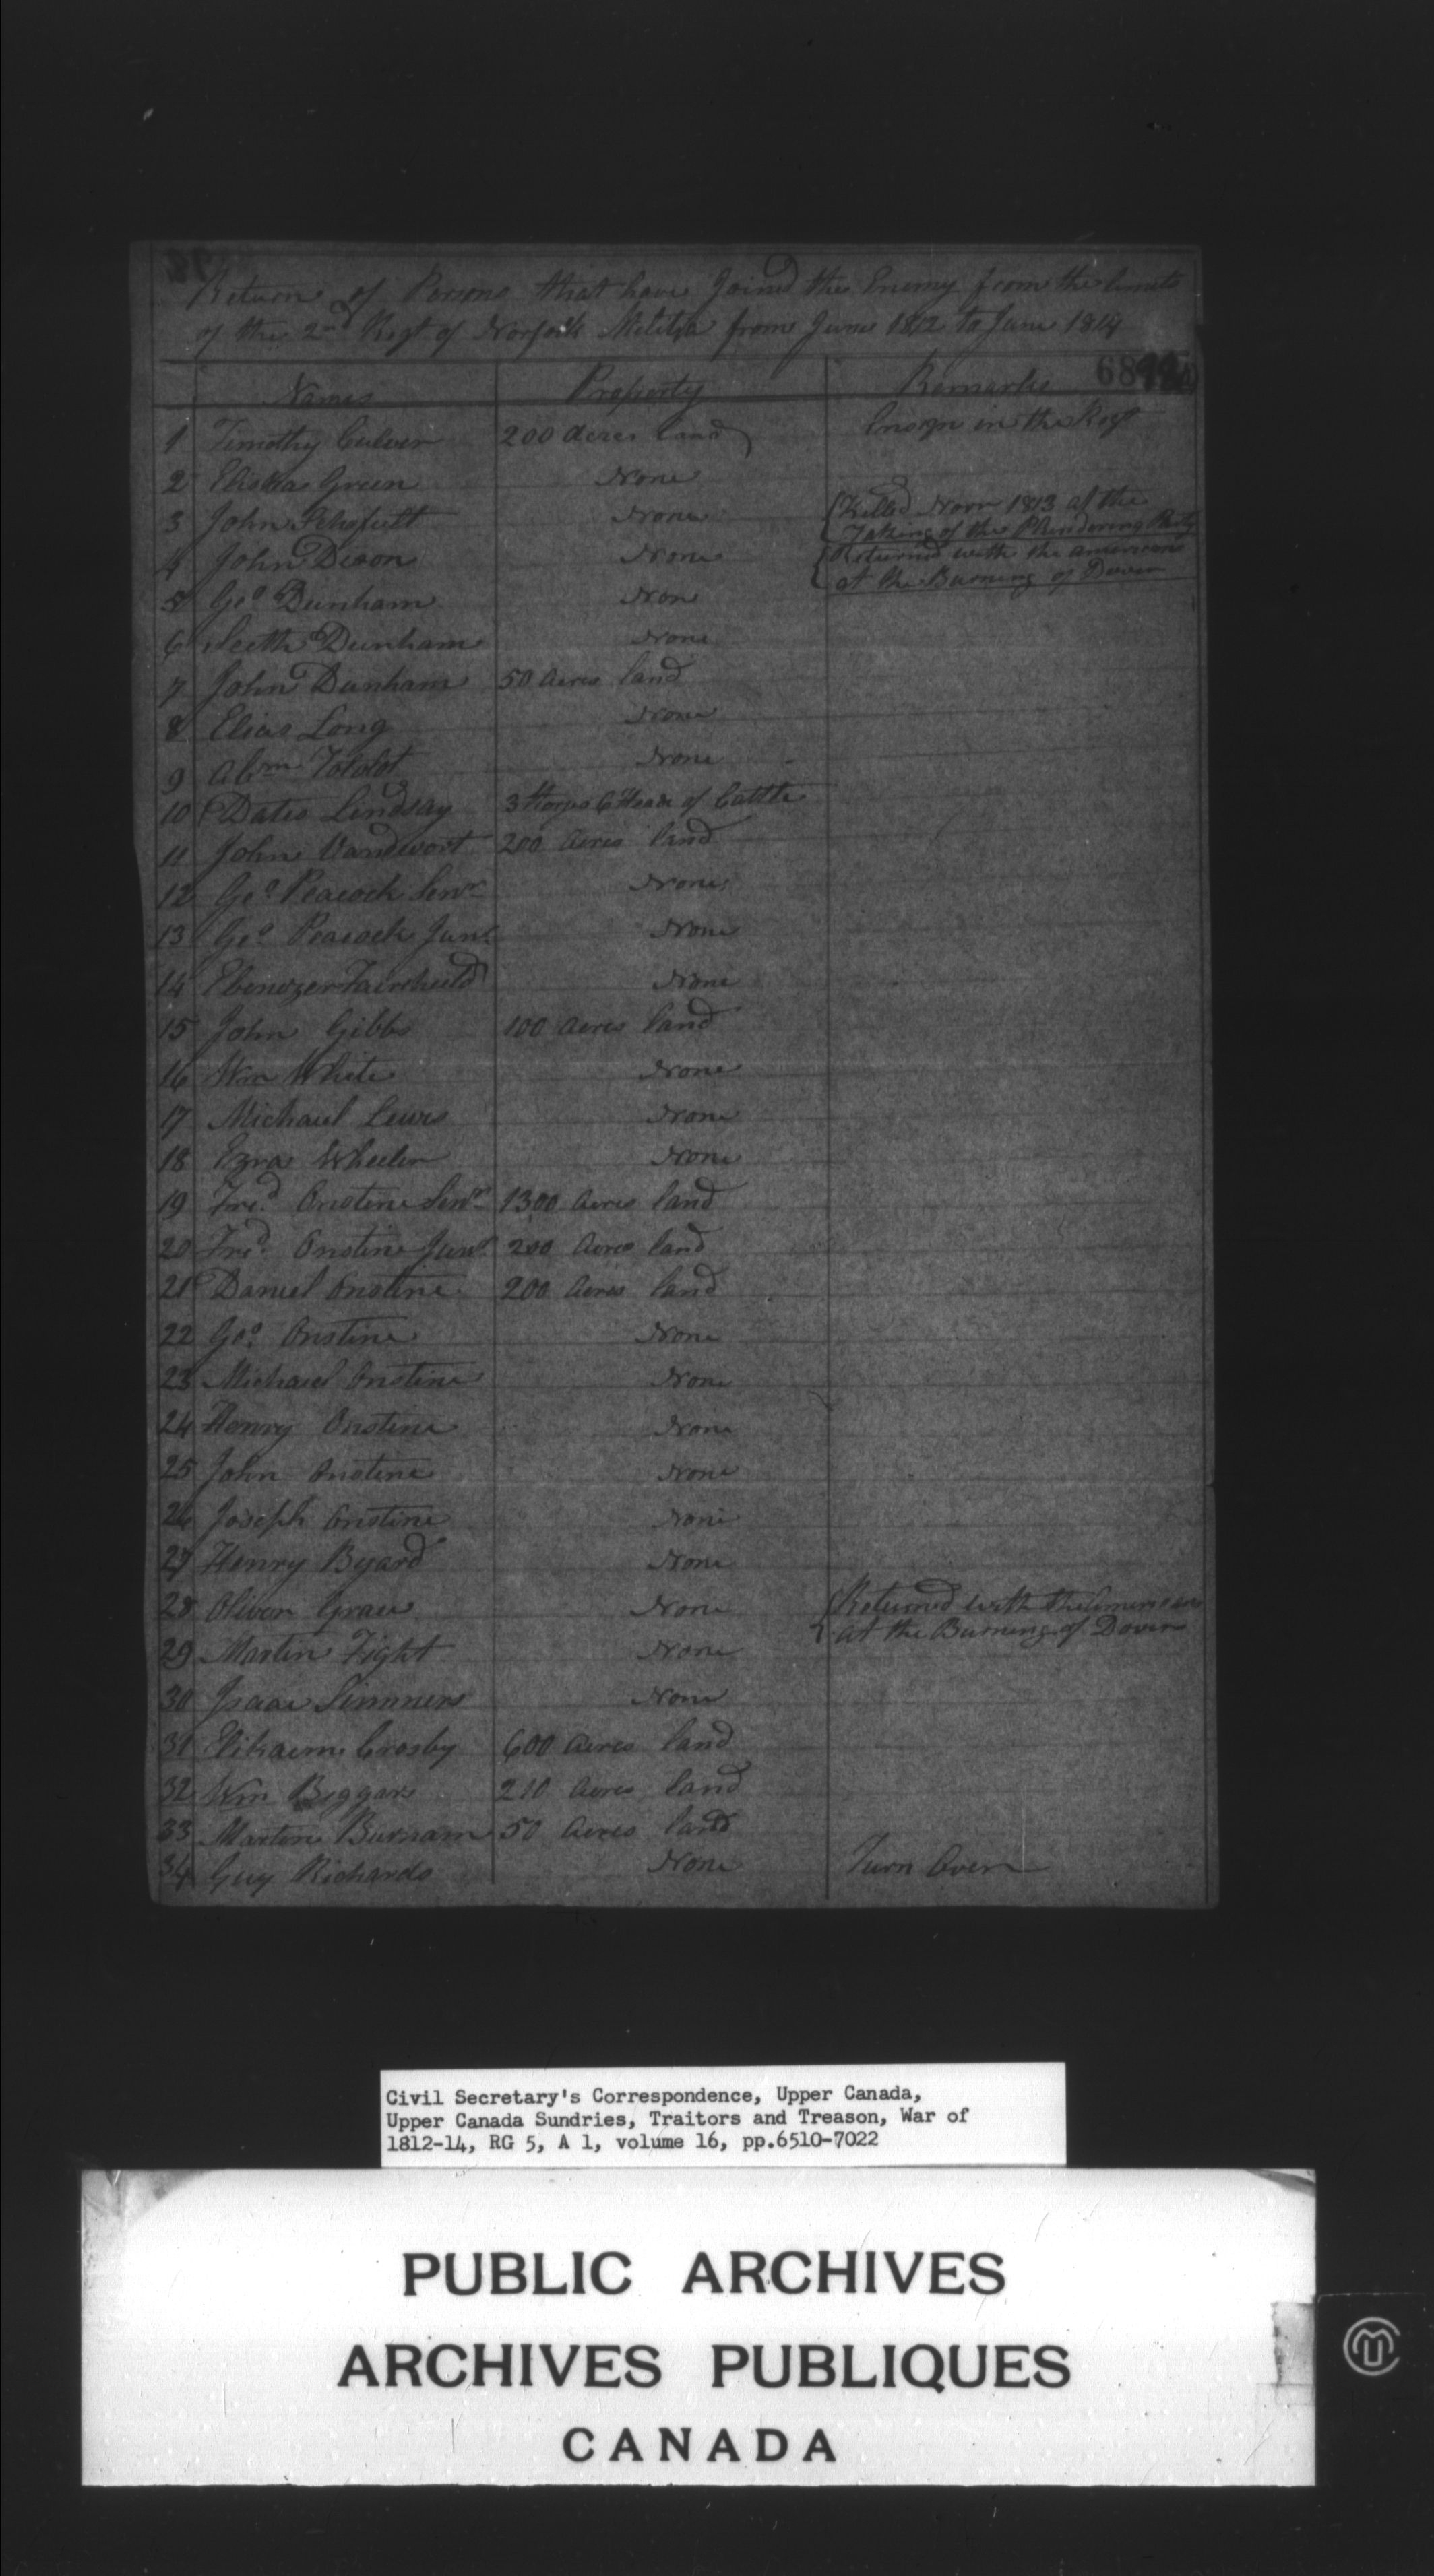 Return of Persons that have Joined the Enemy from the limits
of the 2nd Regt of Norfolk Militia from June 1812 to June 1814
Names Property Remarks 68
1 Timothy Culver 200 Acres land Ensign in the Regt
2 Elisha Green None
3 John Schofield None Killed Novr 1813 at the
Taking of the Plundering Party
4 John Dixon None Returned with the americans
at the Burning of Dover
5 Geo Dunham None
6 Seeth Dunham None
7 John Dunham 50 Acres land
8 Elias Long None
9 Abm None
10 Dates Lindsay 3 Horses 6 Head of Cattle
11 John Vandwort 200 Acres land
12 Geo Peacock Senr None
13 Geo Peacock Junr None
14 Ebenezer Fairchield None
15 John Gibbs 100 Acres land
16 Wm White None
17 Michael Lewis None
18 Ezra Wheeler None
19 Fred Onstine Senr 1300 Acres land
20 Fred Onstine Junr 200 Acres land
21 Daniel Onstine 200 Acres land
22 Geo Onstine None
23 Michael Onstine None
24 Henry Onstine None
25 John Onstine None
26 Joseph Onstine None
27 Henry Byard None
28 Oliver Grace None Returned with the Americans
at the Burning of Dover
29 Martin Fight None
30 Isaac Simmers None
31 Crosby 600 Acres land
32 Wm Beggars 210 Acres land
33 Martin Burnam 50 Acres land
34 Guy Richards None Turn Over
Civil Secretary's Correspondence, Upper Canada,
Upper Canada Sundries, Traitors and Treason, War of
1812-14, RG 5, A 1, volume 16, pp.6510-7022
PUBLIC ARCHIVES
ARCHIVES PUBLIQUES
CANADA